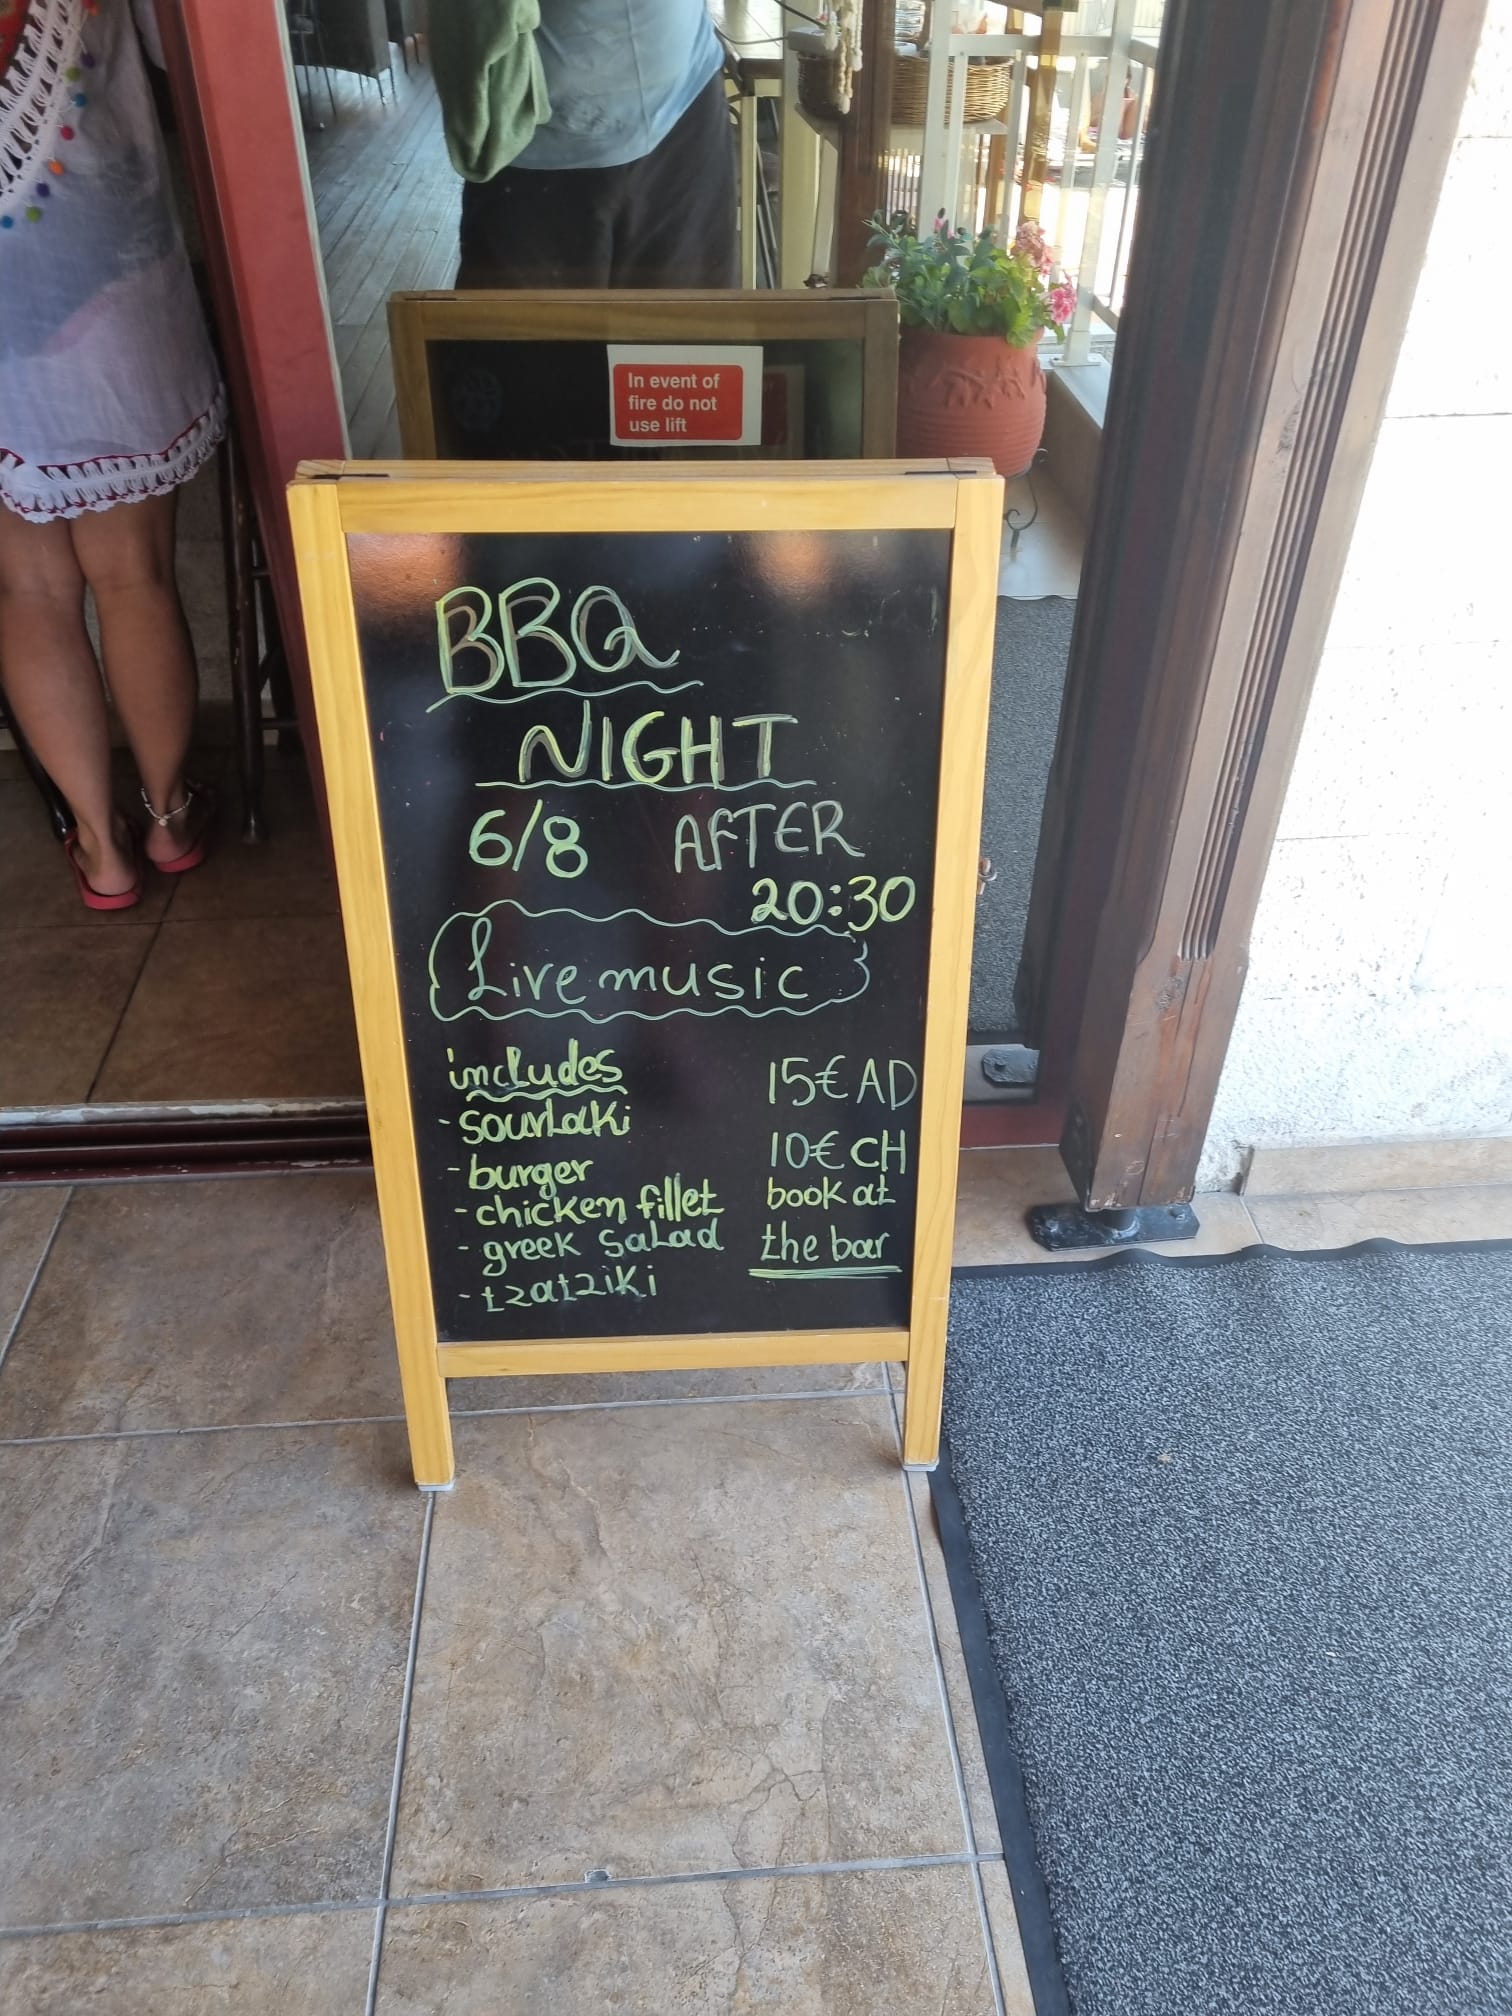 In event of
fire do not
use lift
BBQ
NIGHT
6/8 AFTER
20:30
Live music
includes
- souvlaki
- burger
- chicken fillet
- greek salad
- tzatziki
15€ AD
10€ CH
book at
the bar